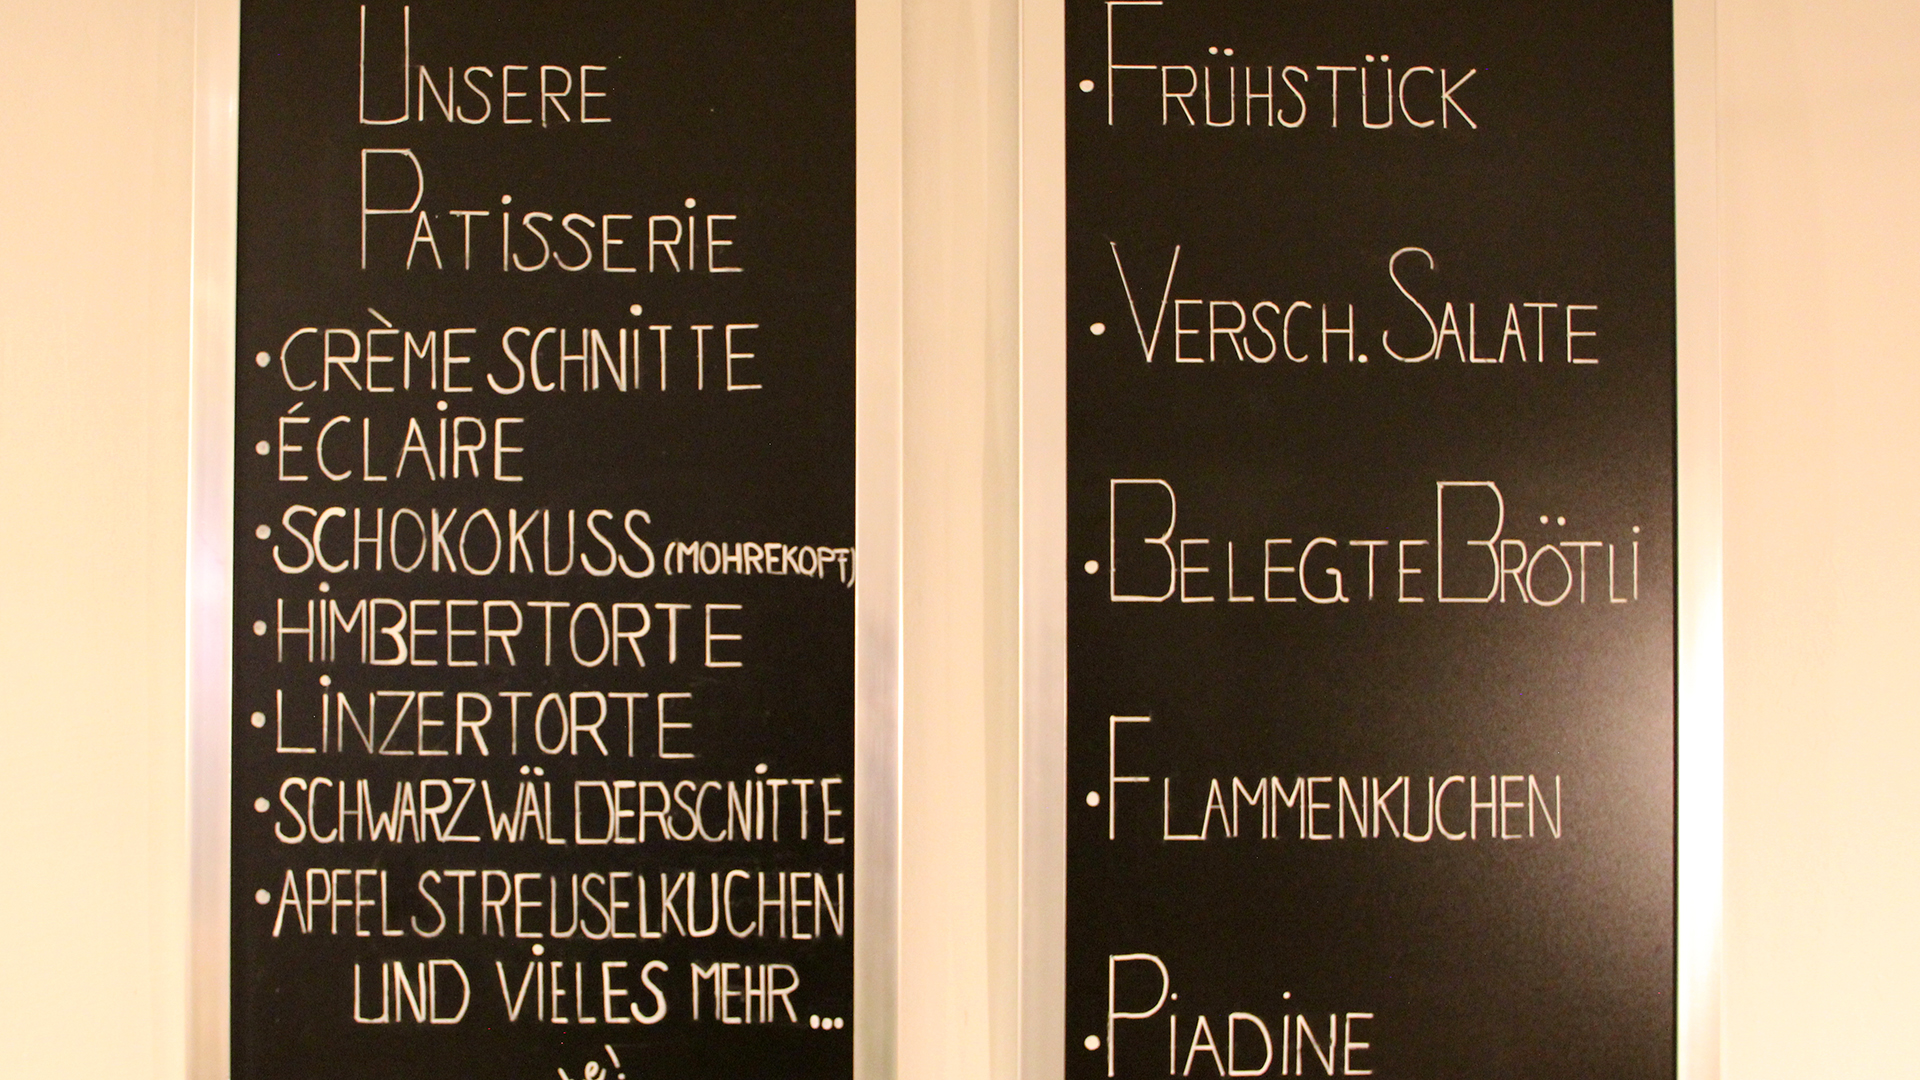 UNSERE
PATISSERIE
• CRÈME SCHNITTE
• ÉCLAIRE
• SCHOKOKUSS (MOHREKOPF)
• HIMBEERTORTE
• LINZERTORTE
• SCHWARZWÄLDERSCNITTE
• APFELSTREUSELKUCHEN
UND VIELES MEHR...
• FRÜHSTÜCK
• VERSCH. SALATE
• BELEGTE BRÖTLI
• FLAMMENKUCHEN
• PIADINE